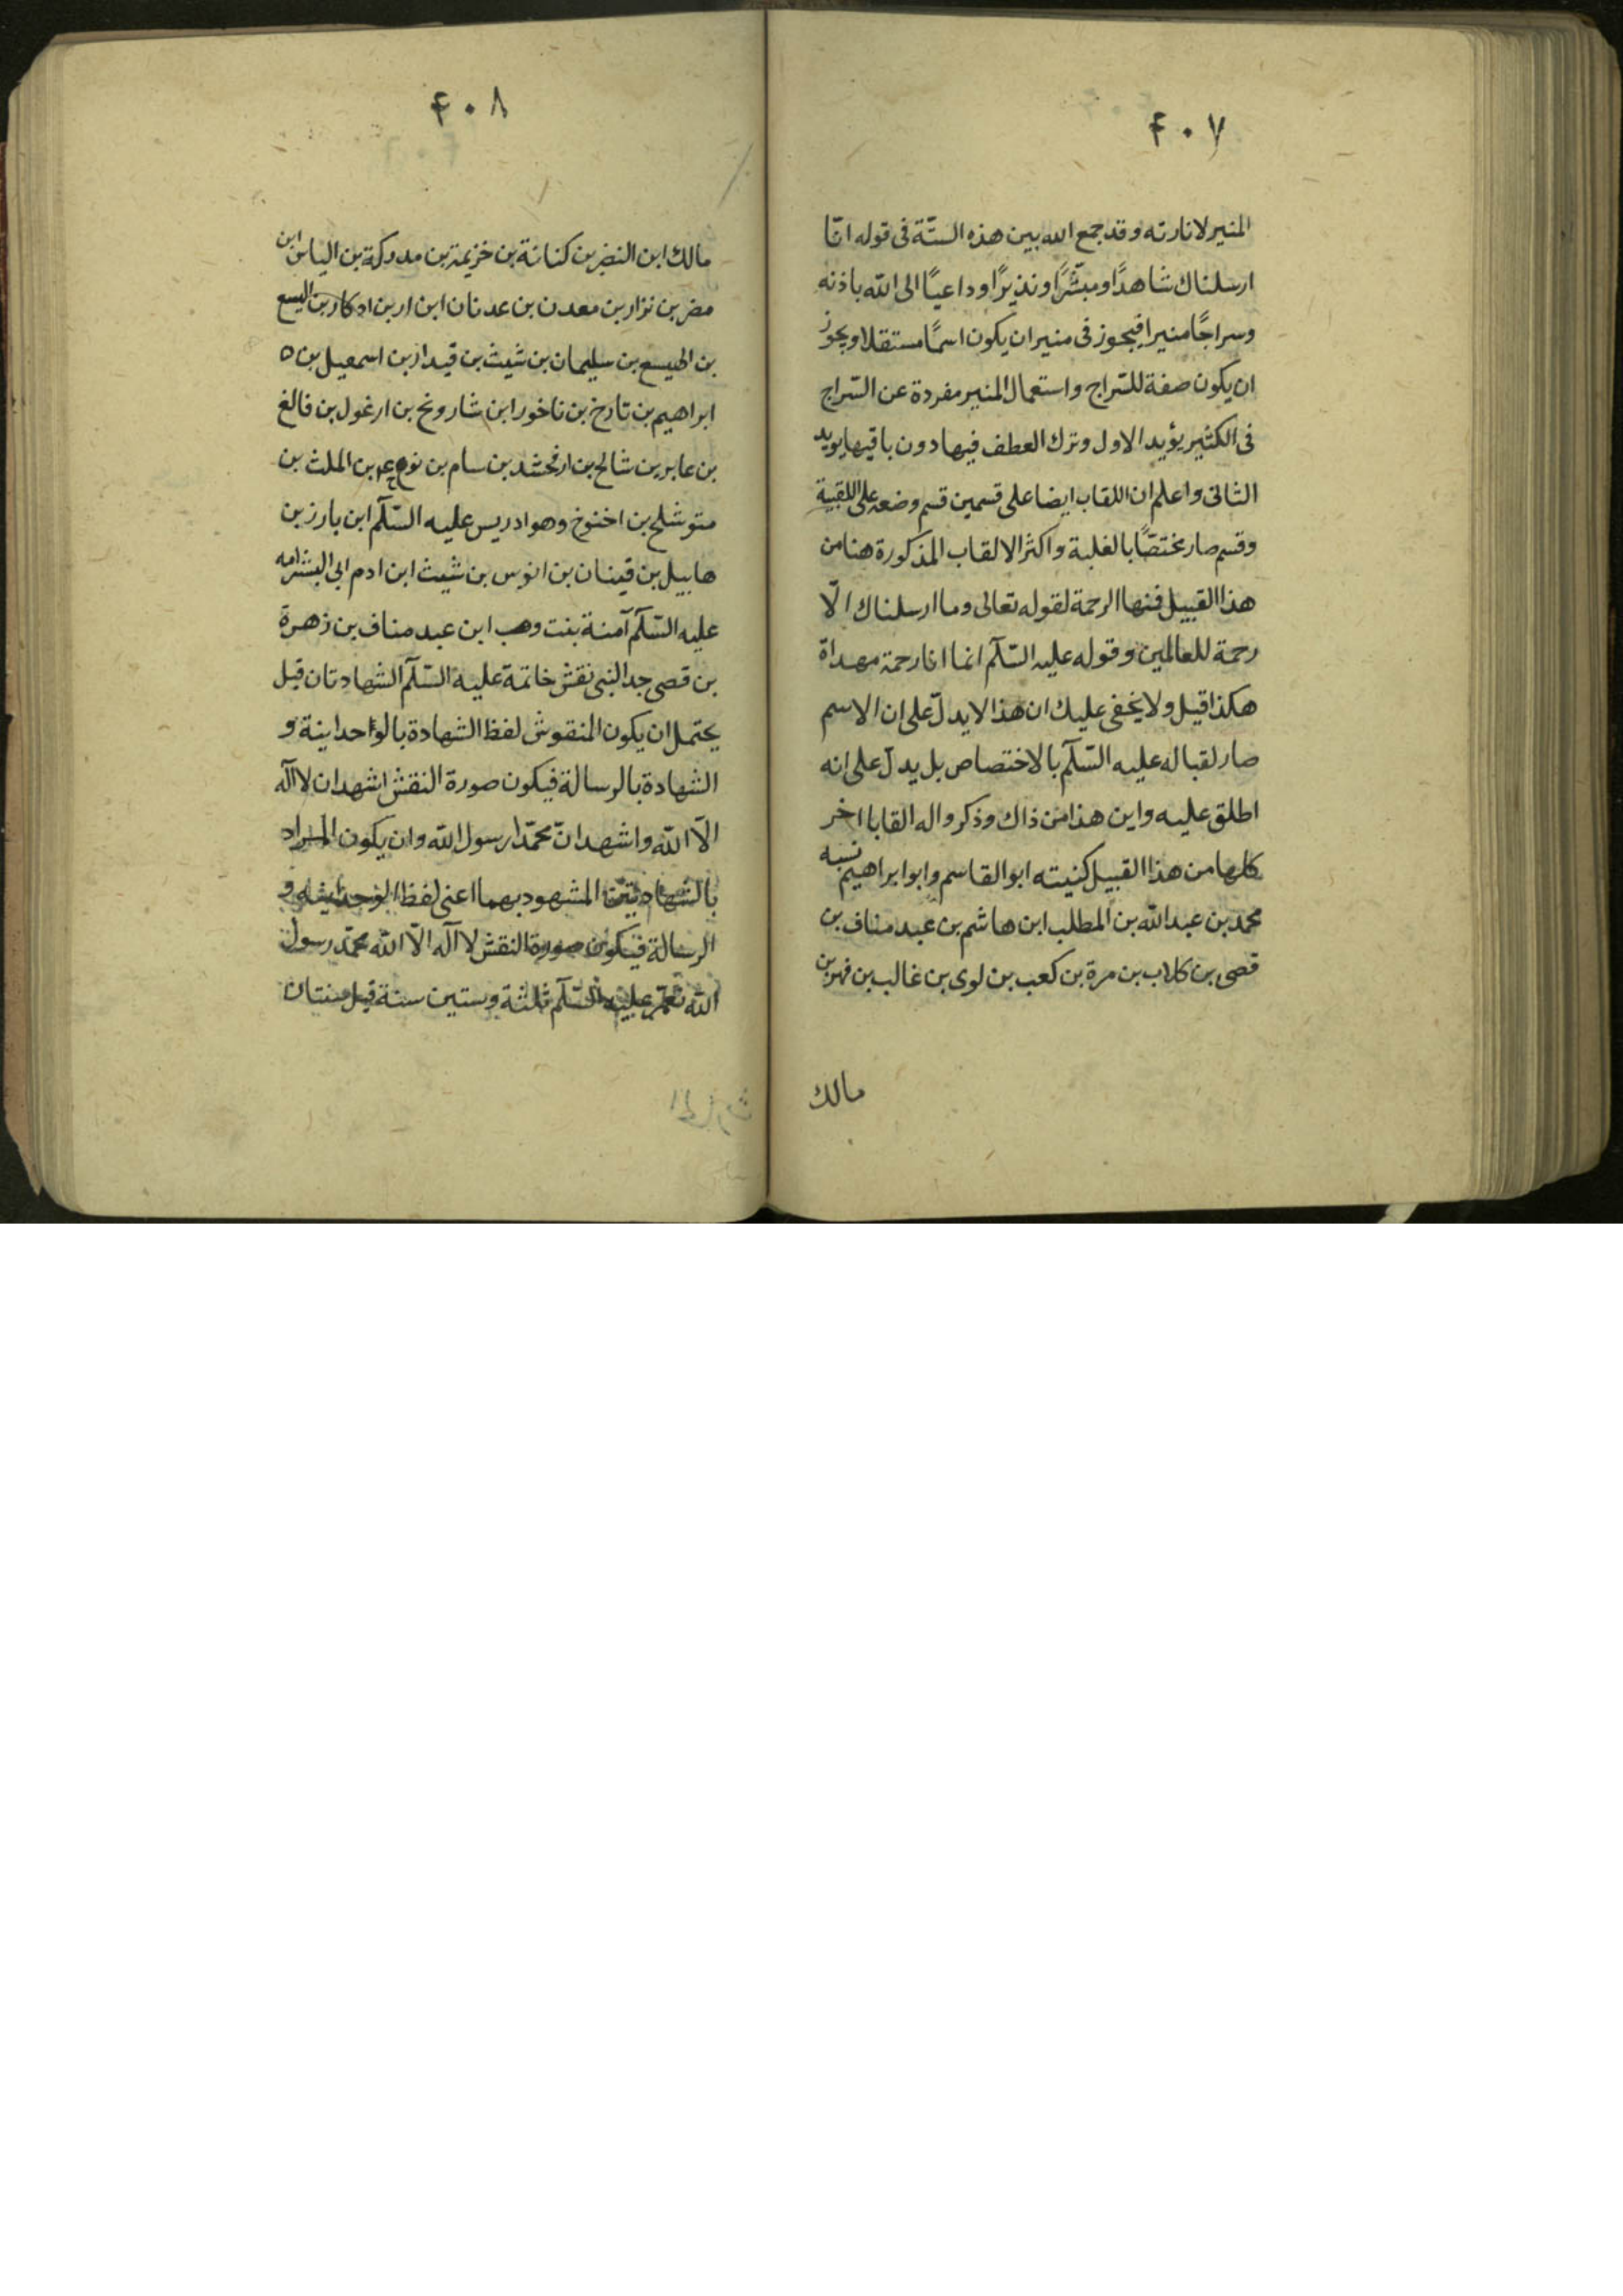 ۴۰۷
المنير لانارته وقد جمع الله بين هذه الستّة فى قوله انّا
ارسلناك شاهدًا ومبشّرًا ونذيرًا وداعيًا الى الله باذنه
وسراجًا منيرا فيجوز فى منير ان يكون اسمًا مستقلا ويجوز
ان يكون صفة للسّراج واستعمال المنير مفردة عن السّراج
فى الكثير يؤيد الاول وترك العطف فيها دون باقيها يويد
الثانى واعلم ان اللقاب ايضا على قسمين قسم وضعه على اللقبية
وقسم صار مختصًّا بالغلبة واكثر الالقاب المذكورة هنا من
هذا القبيل فمنها الرحمة لقوله تعالى وما ارسلناك الّا
رحمة للعالمين وقوله عليه السّلام انما انا رحمة مهداة
هكذا قيل ولا يخفى عليك ان هذا لا يدلّ على ان الاسم
صار لقبا له عليه السّلام بالاختصاص بل يدل على انه
اطلق عليه واين هذا من ذاك وذكروا له القابا اخر
كلها من هذا القبيل كنيته ابو القاسم وابو ابراهيم نسبه
محمد بن عبد الله بن المطلب ابن هاشم بن عبد مناف بن
قصى بن كلاب بن مرة بن كعب بن لوى بن غالب بن فهر بن
مالك
۴۰۸
مالك ابن النضر بن كنانة بن خزيمة بن مدركة بن الياس ابن
مضر بن نزار بن معد بن عدنان ابن ار بن اد كار بن اليسع
بن الهيسع بن سليمان بن شيث بن قيدار بن اسمعيل بن
ابراهيم بن تارخ بن ناخور ابن شارونح بن ارغول بن فالغ
بن عابر بن شالخ بن ارفخشد بن سام بن نوح عم بن الملث بن
متوشلح بن اخنوخ وهو ادريس عليه السّلام ابن بارز بن
هابيل بن قينان بن انوس بن شيث ابن ادم ابى البشر امه
عليه السّلام آمنة بنت وهب ابن عبد مناف بن زهرة
بن قصى جد النبى نقش خاتمة عليه السّلام الشهادتان قيل
يحتمل ان يكون المنقوش لفظ الشهادة بالواحداينة و
الشهادة بالرسالة فيكون صورة النقش اشهد ان لا اله
الّا الله واشهد انّ محمّدا رسول الله وان يكون المراد
بالشهادتين المشهود بهما اعنى لفظ و
الرسالة فيكون صورة النقش لا اله الّا الله محمّد رسول
الله عليه السّلام ثلثة وستين سنة قيل سنتان